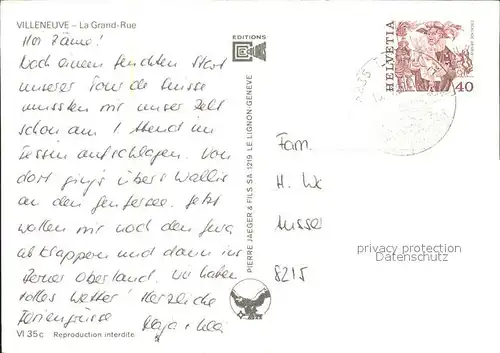 VILLENEUVE – La Grand-Rue
Hoi Zäme!
Nach einem feuchten Start
unserer Tour de Suisse
mussten wir unser Zelt
schon am 1 Abend im
Tessin aufschlagen. Von
dort ging's übers Wallis
an den Genfersee. Jetzt
wollen wir noch den Jura
abklappern und dann ins
Berner Oberland. Wir haben
tolles Wetter! Herzliche
Feriengrüsse
VI 35c Reproduction interdite
EDITIONS
PIERRE JAEGER & FILS SA 1219 LE LIGNON-GENEVE
HELVETIA
40
Fam.
H. We
8215
privacy protection
Datenschutz